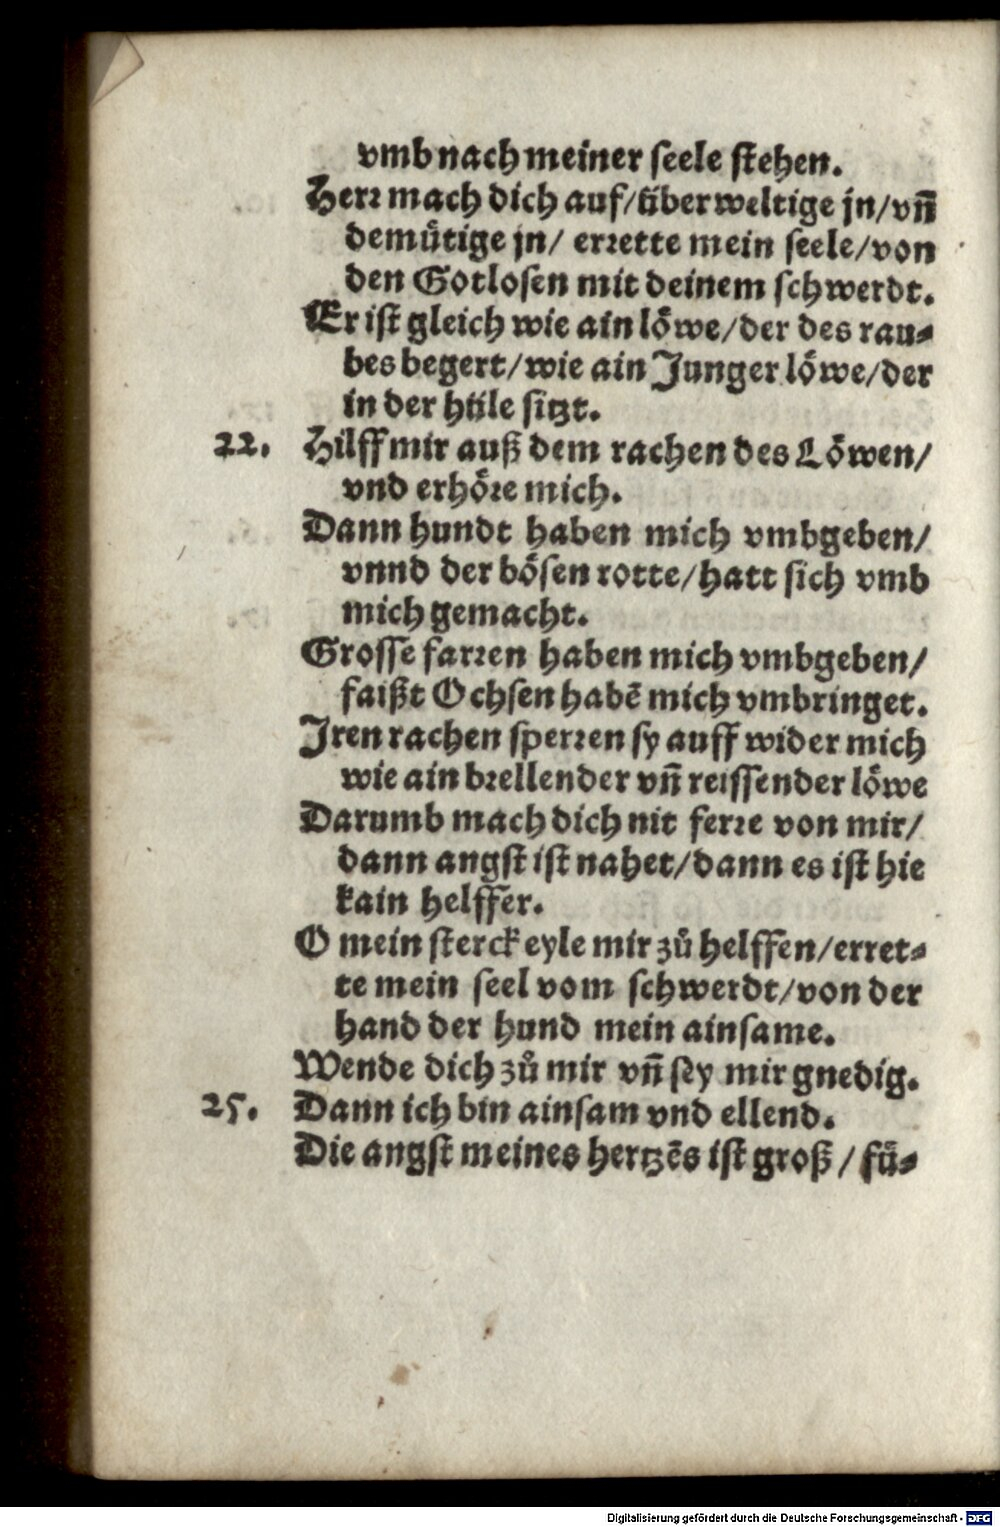 vmb nach meiner seele stehen.
Herr mach dich auf/überweltige jn/vñ
demuͤtige jn/ errette mein seele/von
den Gotlosen mit deinem schwerdt.
Er ist gleich wie ain loͤwe/der des rau⸗
bes begert/wie ain Junger loͤwe/der
in der hüle sitzt.
22. Hilff mir auß dem rachen des Loͤwen/
vnd erhoͤre mich.
Dann hundt haben mich vmbgeben/
vnnd der boͤsen rotte/hatt sich vmb
mich gemacht.
Grosse farren haben mich vmbgeben/
faißt Ochsen habē mich vmbringet.
Jren rachen sperren sy auff wider mich
wie ain brellender vñ reissender loͤwe
Darumb mach dich nit ferre von mir/
dann angst ist nahet/dann es ist hie
kain helffer.
O mein sterck eyle mir zuͦ helffen/erret⸗
te mein seel vom schwerdt/von der
hand der hund mein ainsame.
Wende dich zuͦ mir vñ sey mir gnedig.
25. Dann ich bin ainsam vnd ellend.
Die angst meines hertzēs ist groß/ fuͤ⸗
Digitalisierung gefördert durch die Deutsche Forschungsgemeinschaft - DFG